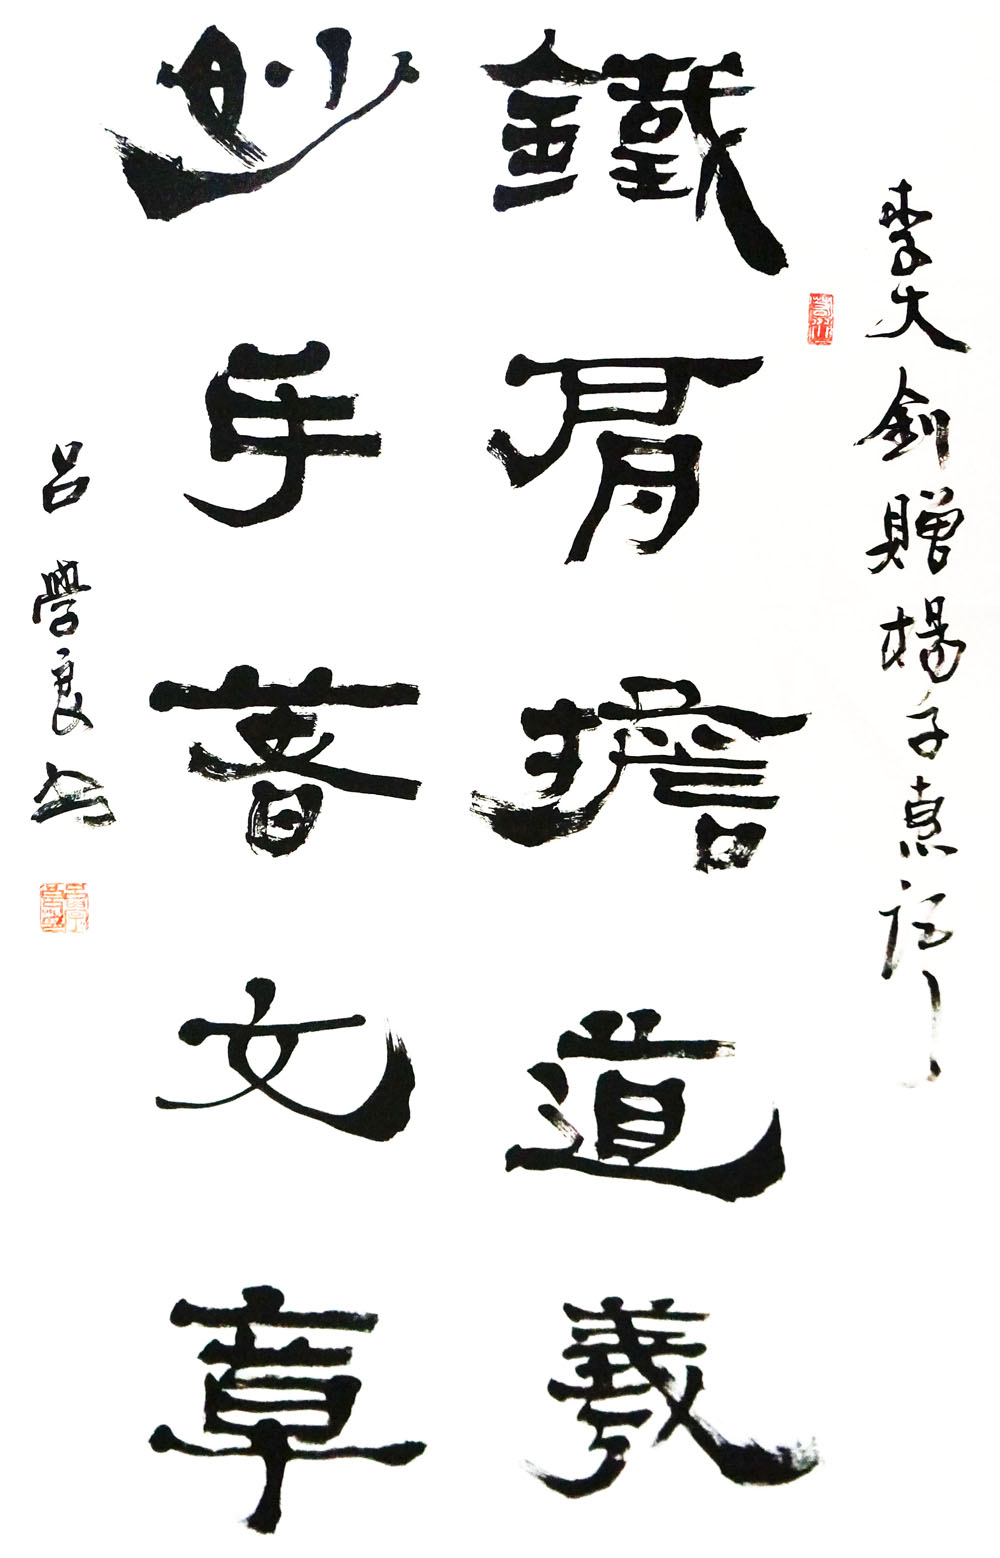 李大釗贈楊子惠
鐵肩擔道義
妙手著文章
吕學良书